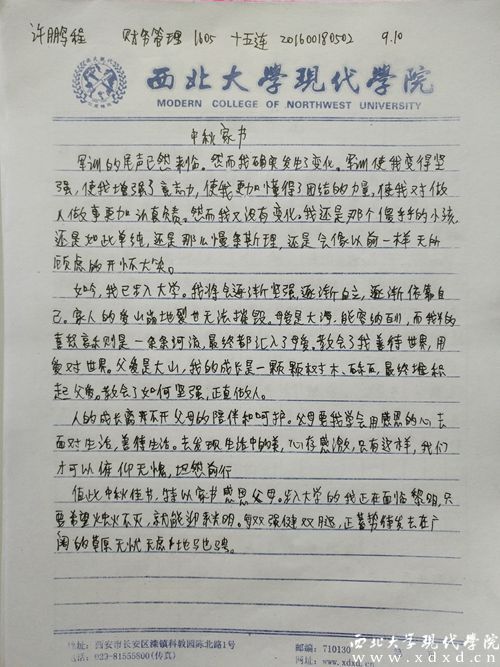 许鹏程 财务管理 1605 十五连 201600180502 9.10
西北大学现代学院
MODERN COLLEGE OF NORTHWEST UNIVERSITY
中秋家书
军训的尾声已然来临。然而我确实发生了变化。军训使我变得坚
强,使我增强了意志力,使我更加懂得了团结的力量,使我对做
人做事更加认真负责。然而我又没有变化。我还是那个傻乎乎的小孩
还是如此单纯,还是那么慢条斯理,还是会像以前一样无所
顾虑的开怀大笑。
如今,我已步入大学。我将会逐渐坚强,逐渐自立,逐渐依靠自
己。家人的爱山崩地裂也无法摧毁。母爱是大海,能容纳百川,而我的
喜怒哀乐则是一条条河流,最终都汇入了母爱。教会了我善待世界,用
爱对世界。父爱是大山,我的成长是一颗颗树木、砾石,最终堆积
起父爱。教会了如何坚强,正直做人。
人的成长离不开父母的陪伴和呵护。父母要我学会用感恩的心去
面对生活,善待生活。去发现生活中的美,心存感激,只有这样,我们
才可以俯仰无愧,坦然前行
值此中秋佳节,特以家书感恩父母。步入大学的我正在面临黎明,只
要希望烛火不灭,就能迎来光明。每双强健双腿,正蓄势待发去在广
阔的草原无忧无虑地驰骋。
地址:西安市长安区滦镇科教园陈北路1号
电话:029-81555800(传真)
邮编:710130
网址:www.xdxd
西北大学现代学院
www.xdxd.cn